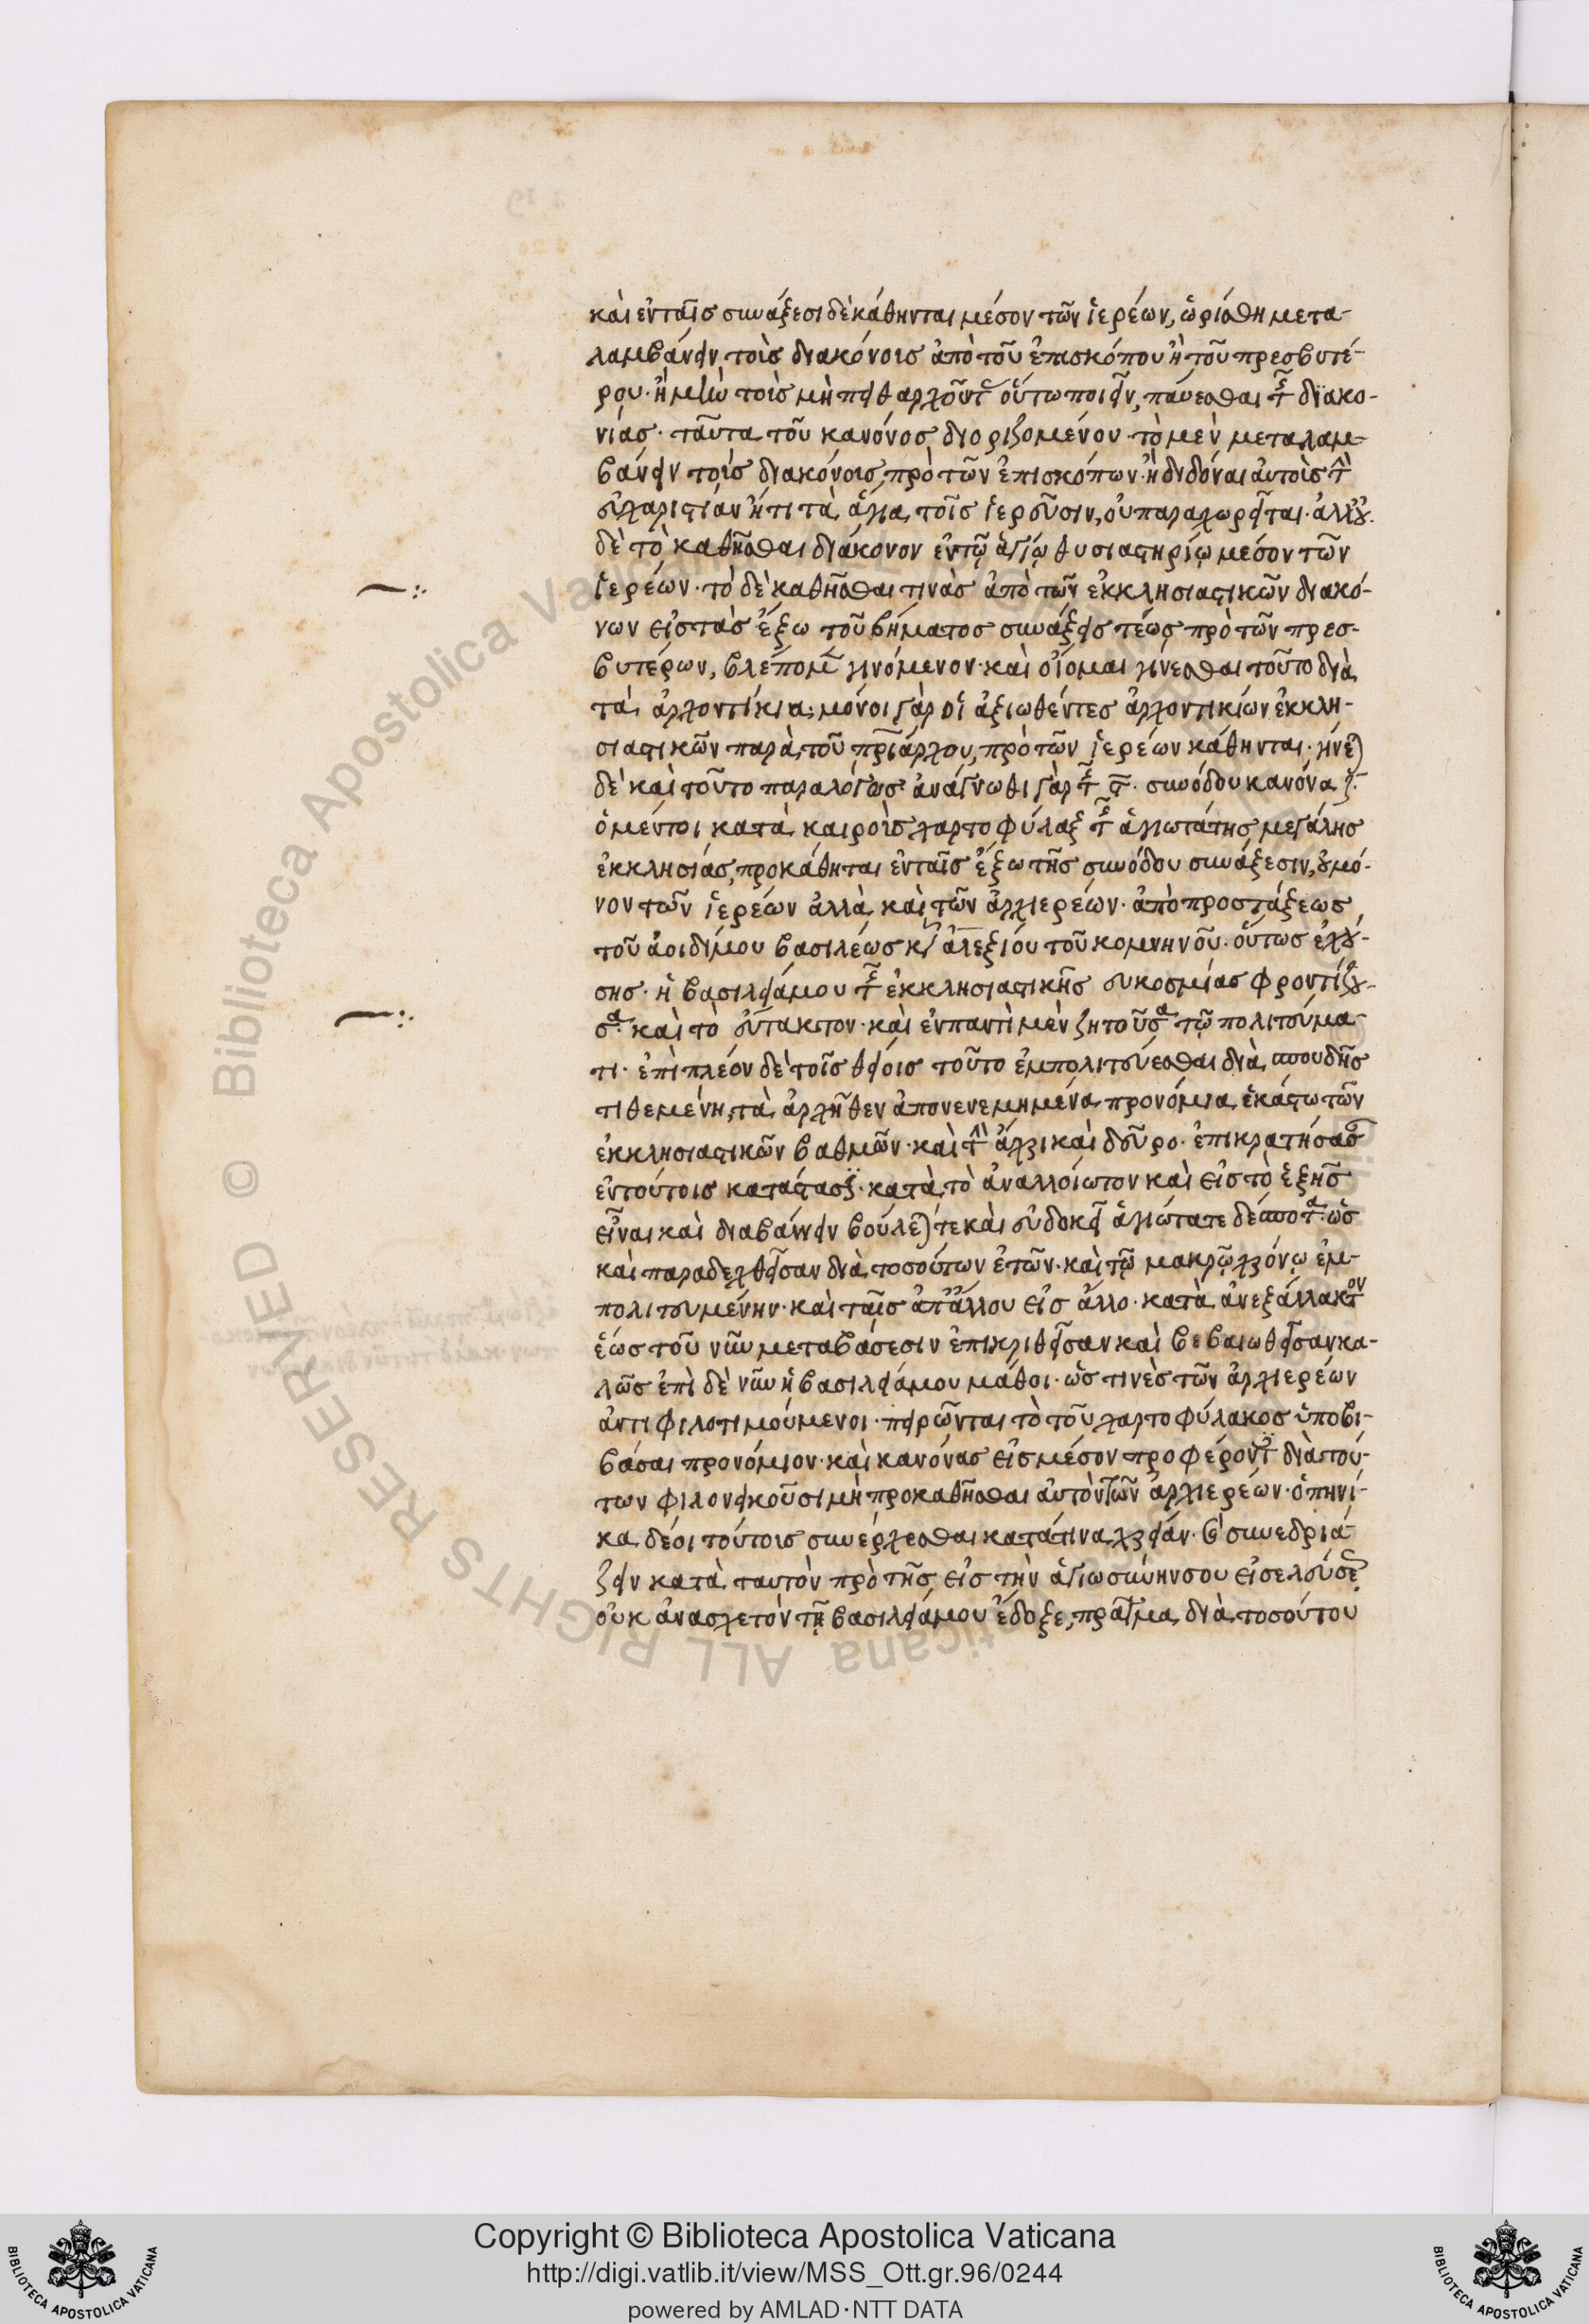 καὶ ἐν ταῖς συνάξεσι δὲ κάθηνται μέσον τῶν ἱερέων, ὡρίσθη μετα-
λαμβάνειν τοὶς διακόνοις ἀπὸ τοῦ ἐπισκόπου ἢ τοῦ πρεσβυτέ-
ρου· ἢ μὴν τοὶς μὴ πειθαρχοῦντ οὕτω ποιεῖν, παύεσθαι τῆς διακο-
νίας· ταῦτα τοῦ κανόνος διοριζομένου· τὸ μὲν μεταλαμ-
βάνειν τοὶς διακόνοις πρὸ τῶν ἐπισκόπων· ἢ διδόναι αὐτοὶς τὴν
εὐχαριστίαν ἤτι τὰ ἅγια τοῖς ἱερεῦσιν, οὐ παραχωρεῖται· ἀλλ' οὐ
δὲ τὸ καθῆσθαι διάκονον ἐν τῷ ἁγίῳ θυσιαστηρίῳ μέσον τῶν
ἱερέων· τὸ δὲ καθῆσθαι τινὰς ἀπὸ τῶν ἐκκλησιαστικῶν διακό-
νων εἰς τὰς ἔξω τοῦ βήματος συνάξεις τέως πρὸ τῶν πρεσ-
βυτέρων, βλέπομεν γινόμενον· καὶ οἴομαι γίνεσθαι τοῦτο διὰ
τὰ ἀρχοντίκια· μόνοι γὰρ οἱ ἀξιωθέντες ἀρχοντικίων ἐκκλη-
σιαστικῶν παρὰ τοῦ πριάρχου, πρὸ τῶν ἱερέων κάθηνται· γίνεται
δὲ καὶ τοῦτο παραλόγως ἀνάγνωθι γὰρ τῆς ϛ συνόδου κανόνα ζ·
ὁ μέντοι κατὰ καιροὶς χαρτοφύλαξ τῆς ἁγιωτάτης μεγάλης
ἐκκλησίας, προκάθηται ἐν ταῖς ἔξω τῆς συνόδου συνάξεσιν, οὐ μό-
νον τῶν ἱερέων ἀλλὰ καὶ τῶν ἀρχιερέων· ἀπὸ προστάξεως
τοῦ ἀοιδίμου βασιλέως κυ ἀλεξίου τοῦ κομνηνοῦ· οὕτως ἐχού-
σης· ἡ βασιλεία μου τῆς ἐκκλησιαστικῆς εὐκοσμίας φροντίζου-
σα· καὶ τὸ εὔτακτον· καὶ ἐν παντὶ μὲν ζητοῦσα τῷ πολιτεύμα-
τι· ἐπὶ πλέον δὲ τοῖς θείοις τοῦτο ἐμπολιτεύεσθαι διὰ σπουδῆς
τιθεμένη, τὰ ἀρχῆθεν ἀπονενεμημένα προνόμια ἑκάστω τῶν
ἐκκλησιαστικῶν βαθμῶν· καὶ τὴν ἄχρι καὶ δεῦρο· ἐπικρατήσασαν
ἐν τούτοις κατάστασιν· κατὰ τὸ ἀναλλοίωτον καὶ εἰς τὸ ἑξῆς
εἶναι καὶ διαβαίνειν βούλεται τε καὶ εὐδοκεῖ ἁγιώτατε δέσποτα· ὡς
καὶ παραδεχθεῖσαν διὰ τοσούτων ἐτῶν· καὶ τῷ μακρῷ χρόνῳ ἐμ-
πολιτευμένην· καὶ ταῖς ἀπ' ἄλλου εἰς ἄλλο· κατὰ ἀνεξάλλακτον
ἕως τοῦ νῦν μεταβάσεσιν ἐπικριθεῖσαν καὶ βεβαιωθεῖσαν κα-
λῶς ἐπὶ δὲ νῦν ἡ βασιλεία μου μάθοι· ὡς τινὲς τῶν ἀρχιερέων
ἀντιφιλοτιμούμενοι· πειρῶνται τὸ τοῦ χαρτοφύλακος ὑποβι-
βάσαι προνόμιον· καὶ κανόνας εἰς μέσον προφέροντ διὰ τού-
των φιλονεικοῦσι μὴ προκαθῆσθαι αὐτὸν τῶν ἀρχιερέων· ὁπηνί-
κα δέοι τούτοις συνέρχεσθαι κατά τινα χρείαν· καὶ συνεδριά-
ζειν κατὰ ταυτὸν πρὸ τῆς εἰς τὴν ἁγιωσύνην σου εἰσελεύσεως
οὐκ ἀνασχετὸν τῇ βασιλεία μου ἔδοξε, πρᾶγμα διὰ τοσούτου
Copyright © Biblioteca Apostolica Vaticana
http://digi.vatlib.it/view/MSS_Ott.gr.96/0244
powered by AMLAD·NTT DATA
BIBLIOTECA APOSTOLICA VATICANA
BIBLIOTECA APOSTOLICA VATICANA
Biblioteca Apostolica Vaticana ALL RIGHTS RESERVED ©